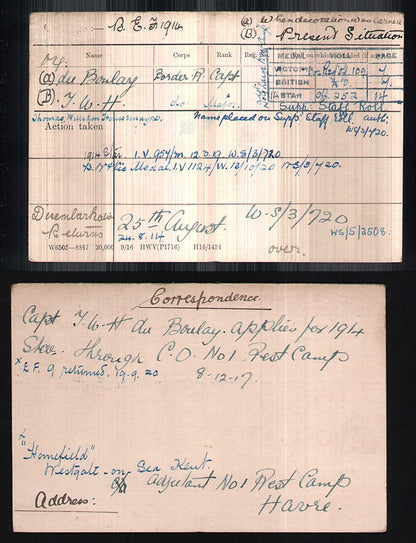 B.E.F 1914
(a) When decoration was earned
(B) Present Situation
Name Corps Rank
04.
(a) du Boulay Border R. Capt
(B). T. W. H. do Major.
MEDAL ROLL PAGE
VICTORY
BRITISH do
STAR 252 14
Supp: Staff Roll
Name placed on Supp: Staff Roll. auth:
WS/3/720.
Action taken
1914 Star. I.V. 959/m. 12.D.19 W.S/3/720
Medal. I.V 1124/W. 12/10/20 WS/3/720.
Disembarkation
Returns
25th August.
24.8.14
W.S/3/720
WS/5/2508.
over.
W6505—S817 20,000 9/16 HWV(P1716) H16/1424
Correspondence
Capt T. W. H du Boulay applies for 1914
Star. through C.O. No 1 Rest Camp
8-12-17.
x E.F. 9 returned. 19.9.20
x "Homefield"
Westgate-on Sea Kent.
c/o Adjutant No 1 Rest Camp
Havre.
Address: